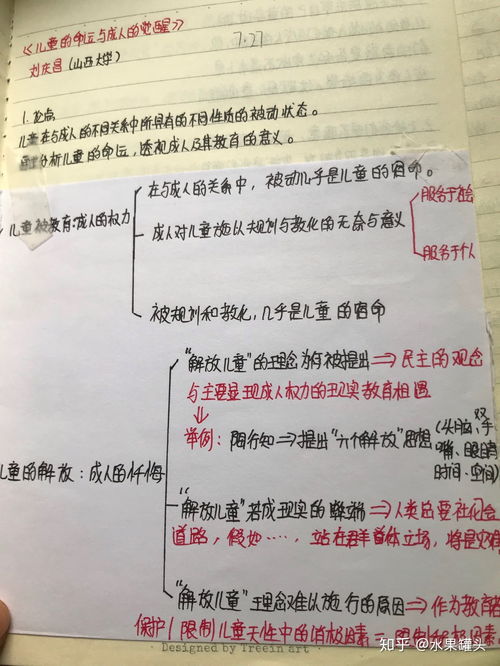 《儿童的命运与成人的觉醒》
7.27
刘庆昌(山西大学)
1. 论点
儿童在与成人的不同关系中所具有的不同性质的被动状态。
分析儿童的命运，透视成人及其教育的意义。
在与成人的关系中，被动几乎是儿童的宿命。
服务于社会
儿童被教育:成人的权力
成人对儿童施以规训与教化的无奈与意义
服务于个人
被规训和教化，几乎是儿童的宿命
"解放儿童"的理念有被提出⇒民主的观念
与主要显现成人权力的现实教育相遇
举例: 陶行知⇒提出"六个解放"思想
(头脑、双手
嘴、眼睛
时间、空间)
儿童的解放: 成人的忏悔
"解放儿童"若成现实的弊端⇒人类总要社会
道路，假如……，站在群体立场，将是灾难
"解放儿童"理念难以施行的原因⇒作为教育者
保护/限制儿童天性中的消极因素=
Designed by Treein art
知乎 @水果罐头